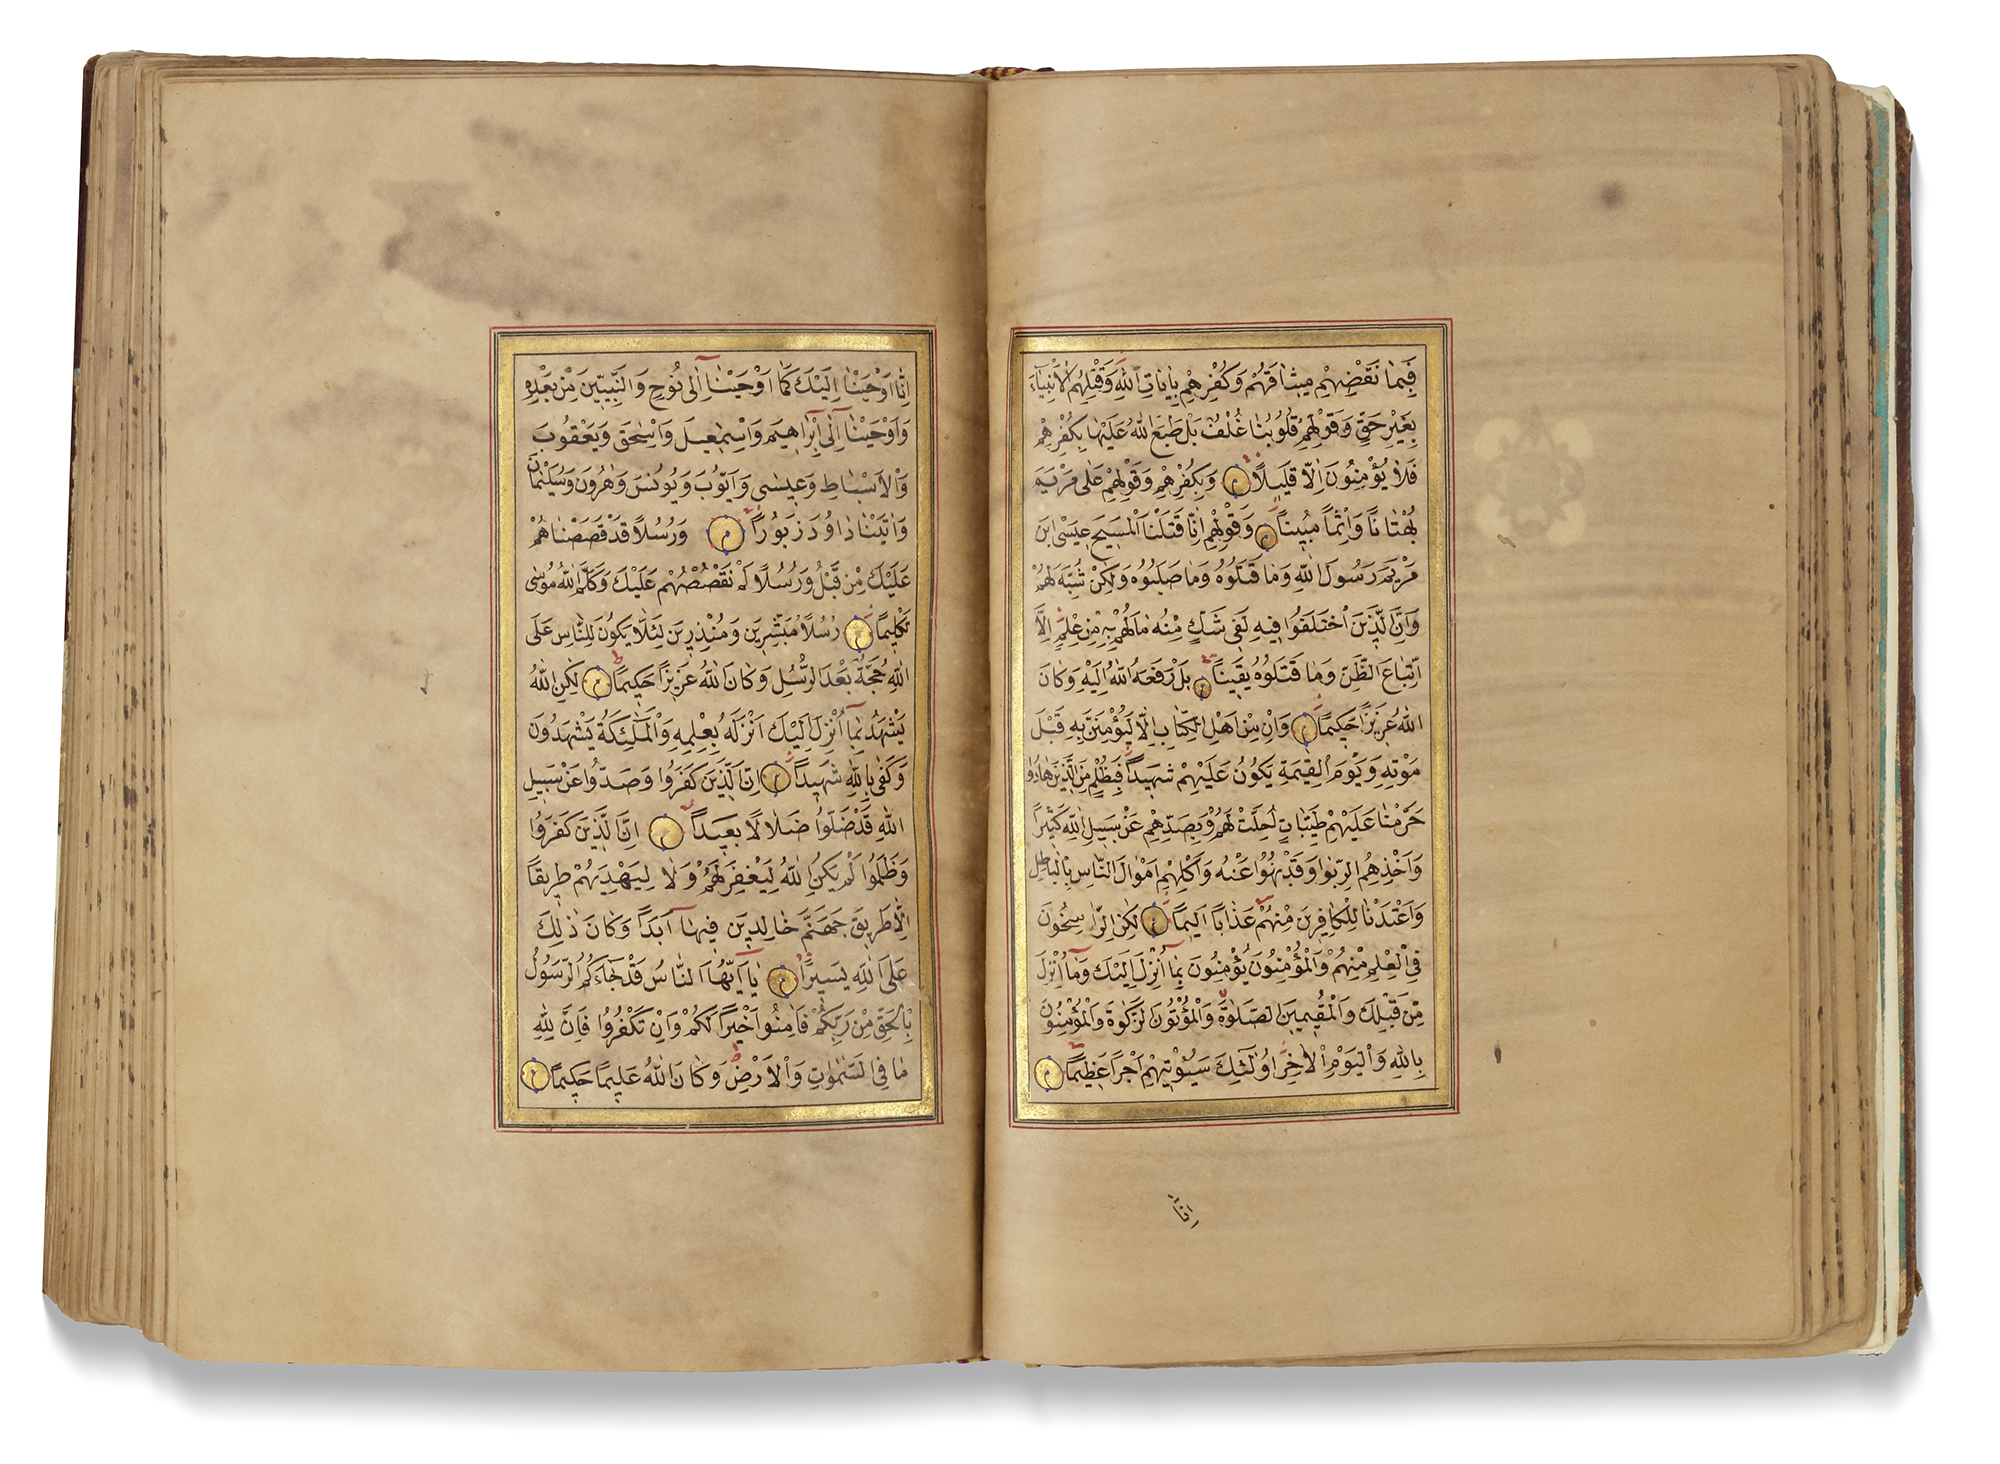 فَبِمَا نَقْضِهِمْ مِيثَاقَهُمْ وَكُفْرِهِمْ بِاٰيَاتِ اللّٰهِ وَقَتْلِهِمُ الْاَنْبِيَاءَ
بِغَيْرِ حَقٍّ وَقَوْلِهِمْ قُلُوبُنَا غُلْفٌ بَلْ طَبَعَ اللّٰهُ عَلَيْهَا بِكُفْرِهِمْ
فَلَا يُؤْمِنُونَ اِلَّا قَلِيلًا وَبِكُفْرِهِمْ وَقَوْلِهِمْ عَلٰى مَرْيَمَ
بُهْتَانًا وَاِثْمًا مُبِينًا وَقَوْلِهِمْ اِنَّا قَتَلْنَا الْمَسِيحَ عِيسَى ابْنَ
مَرْيَمَ رَسُولَ اللّٰهِ وَمَا قَتَلُوهُ وَمَا صَلَبُوهُ وَلٰكِنْ شُبِّهَ لَهُمْ
وَاِنَّ الَّذِينَ اخْتَلَفُوا فِيهِ لَفِى شَكٍّ مِنْهُ مَا لَهُمْ بِهِ مِنْ عِلْمٍ اِلَّا
اتِّبَاعَ الظَّنِّ وَمَا قَتَلُوهُ يَقِينًا بَلْ رَفَعَهُ اللّٰهُ اِلَيْهِ وَكَانَ
اللّٰهُ عَزِيزًا حَكِيمًا وَاِنْ مِنْ اَهْلِ الْكِتَابِ اِلَّا لَيُؤْمِنَنَّ بِهِ قَبْلَ
مَوْتِهِ وَيَوْمَ الْقِيٰمَةِ يَكُونُ عَلَيْهِمْ شَهِيدًا فَبِظُلْمٍ مِنَ الَّذِينَ هَادُوا
حَرَّمْنَا عَلَيْهِمْ طَيِّبَاتٍ اُحِلَّتْ لَهُمْ وَبِصَدِّهِمْ عَنْ سَبِيلِ اللّٰهِ كَثِيرًا
وَاَخْذِهِمُ الرِّبٰوا وَقَدْ نُهُوا عَنْهُ وَاَكْلِهِمْ اَمْوَالَ النَّاسِ بِالْبَاطِلِ
وَاَعْتَدْنَا لِلْكَافِرِينَ مِنْهُمْ عَذَابًا اَلِيمًا لٰكِنِ الرَّاسِخُونَ
فِى الْعِلْمِ مِنْهُمْ وَالْمُؤْمِنُونَ يُؤْمِنُونَ بِمَا اُنْزِلَ اِلَيْكَ وَمَا اُنْزِلَ
مِنْ قَبْلِكَ وَالْمُقِيمِينَ الصَّلٰوةَ وَالْمُؤْتُونَ الزَّكٰوةَ وَالْمُؤْمِنُونَ
بِاللّٰهِ وَالْيَوْمِ الْاٰخِرِ اُولٰئِكَ سَيُؤْتِيهِمْ اَجْرًا عَظِيمًا
اِنَّا
اِنَّا اَوْحَيْنَا اِلَيْكَ كَمَا اَوْحَيْنَا اِلٰى نُوحٍ وَالنَّبِيِّينَ مِنْ بَعْدِهِ
وَاَوْحَيْنَا اِلٰى اِبْرَاهِيمَ وَاِسْمٰعِيلَ وَاِسْحٰقَ وَيَعْقُوبَ
وَالْاَسْبَاطِ وَعِيسٰى وَاَيُّوبَ وَيُونُسَ وَهٰرُونَ وَسُلَيْمٰنَ
وَاٰتَيْنَا دَاوُدَ زَبُورًا وَرُسُلًا قَدْ قَصَصْنَاهُمْ
عَلَيْكَ مِنْ قَبْلُ وَرُسُلًا لَمْ نَقْصُصْهُمْ عَلَيْكَ وَكَلَّمَ اللّٰهُ مُوسٰى
تَكْلِيمًا رُسُلًا مُبَشِّرِينَ وَمُنْذِرِينَ لِئَلَّا يَكُونَ لِلنَّاسِ عَلَى
اللّٰهِ حُجَّةٌ بَعْدَ الرُّسُلِ وَكَانَ اللّٰهُ عَزِيزًا حَكِيمًا لٰكِنِ اللّٰهُ
يَشْهَدُ بِمَا اُنْزِلَ اِلَيْكَ اَنْزَلَهُ بِعِلْمِهِ وَالْمَلٰئِكَةُ يَشْهَدُونَ
وَكَفٰى بِاللّٰهِ شَهِيدًا اِنَّ الَّذِينَ كَفَرُوا وَصَدُّوا عَنْ سَبِيلِ
اللّٰهِ قَدْ ضَلُّوا ضَلَالًا بَعِيدًا اِنَّ الَّذِينَ كَفَرُوا
وَظَلَمُوا لَمْ يَكُنِ اللّٰهُ لِيَغْفِرَ لَهُمْ وَلَا لِيَهْدِيَهُمْ طَرِيقًا
اِلَّا طَرِيقَ جَهَنَّمَ خَالِدِينَ فِيهَا اَبَدًا وَكَانَ ذٰلِكَ
عَلَى اللّٰهِ يَسِيرًا يَا اَيُّهَا النَّاسُ قَدْ جَاءَكُمُ الرَّسُولُ
بِالْحَقِّ مِنْ رَبِّكُمْ فَاٰمِنُوا خَيْرًا لَكُمْ وَاِنْ تَكْفُرُوا فَاِنَّ لِلّٰهِ
مَا فِى السَّمٰوَاتِ وَالْاَرْضِ وَكَانَ اللّٰهُ عَلِيمًا حَكِيمًا